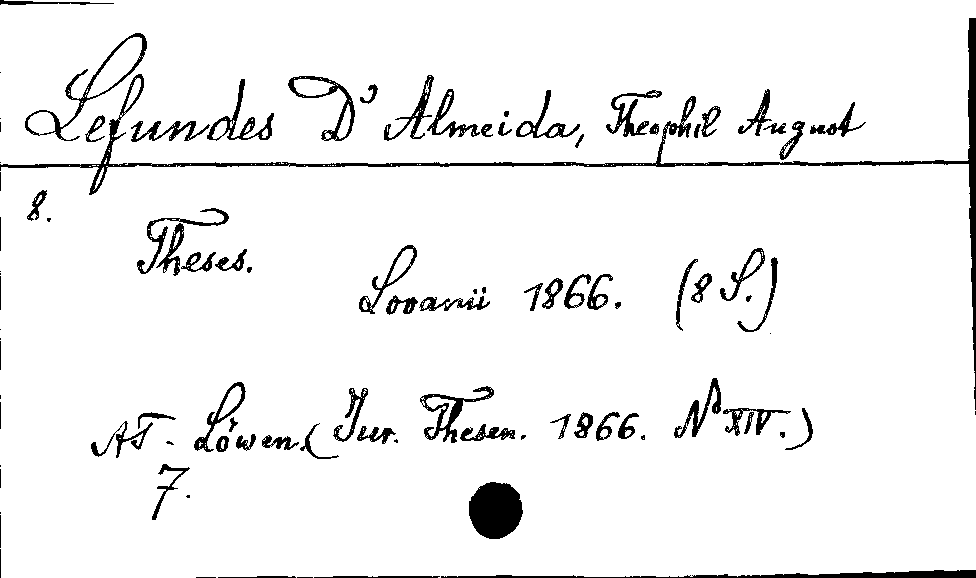 Lefundes D'Almeida, Theophil August
8.
Theses.
Lovanii 1866. (8 S.)
AT. Löwen. (Jur. Thesen. 1866. No XIV.)
7.